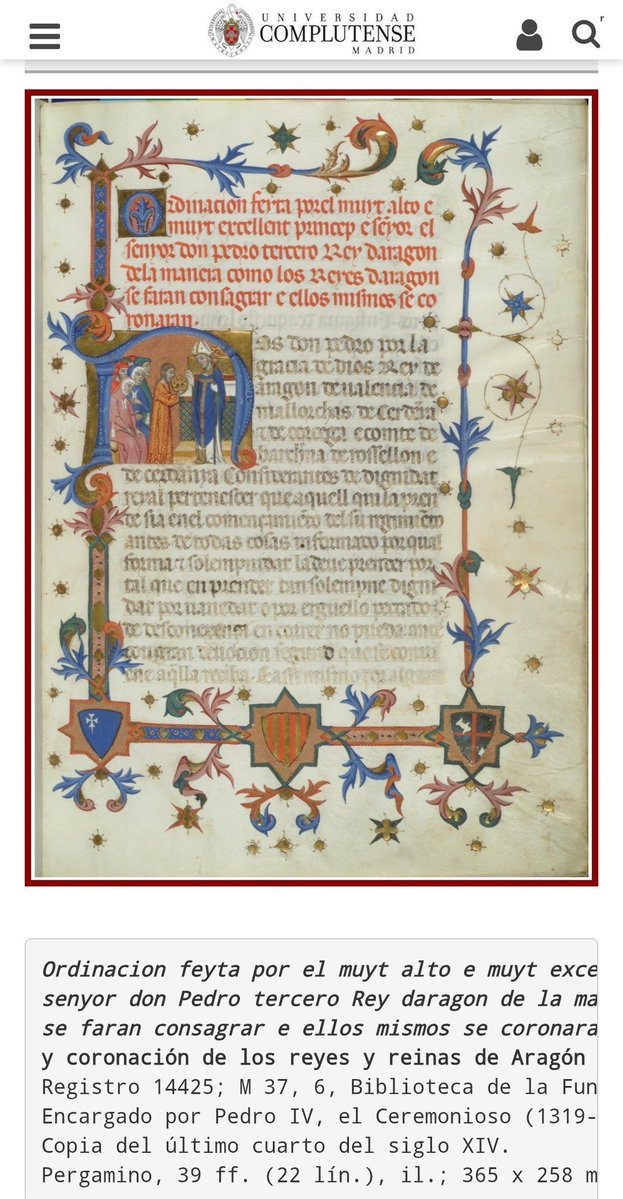 UNIVERSIDAD
COMPLUTENSE
MADRID
r
Ordinacion feyta por el muyt alto e
muyt excellent princep e senyor el
senyor don pedro tercero Rey daragon
dela manera como los Reyes daragon
se faran consagrar e ellos mismos se co
ronaran.
Nos don pedro por la
gracia de dios Rey de
aragon de valencia de
mallorchas de cerdeña
de corcega e comte de
barchna de rossellon e
de cerdanya Considerantes de dignidat
reyal pertenescer que aquell qui la pren
de sia en el comencamiento del su regimiento
antes de todas cosas informado por qual
forma solempnidat la deve prender por
tal que en prender tan solempne digni
dat por vanedat o por erguello
en
con gran devocion segund que se
reciba
Ordinacion feyta por el muyt alto e muyt exce
senyor don Pedro tercero Rey daragon de la ma
se faran consagrar e ellos mismos se coronara
y coronación de los reyes y reinas de Aragón
Registro 14425; M 37, 6, Biblioteca de la Fun
Encargado por Pedro IV, el Ceremonioso (1319-
Copia del último cuarto del siglo XIV.
Pergamino, 39 ff. (22 lín.), il.; 365 x 258 m